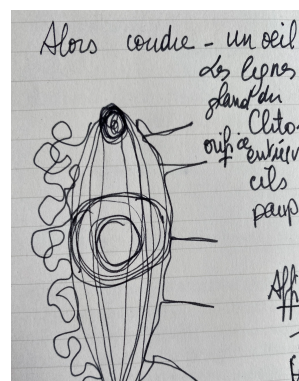 Alors coudre - un oeil
Les lignes
gland du
Clito
orifice entier
cils
paup
Aff